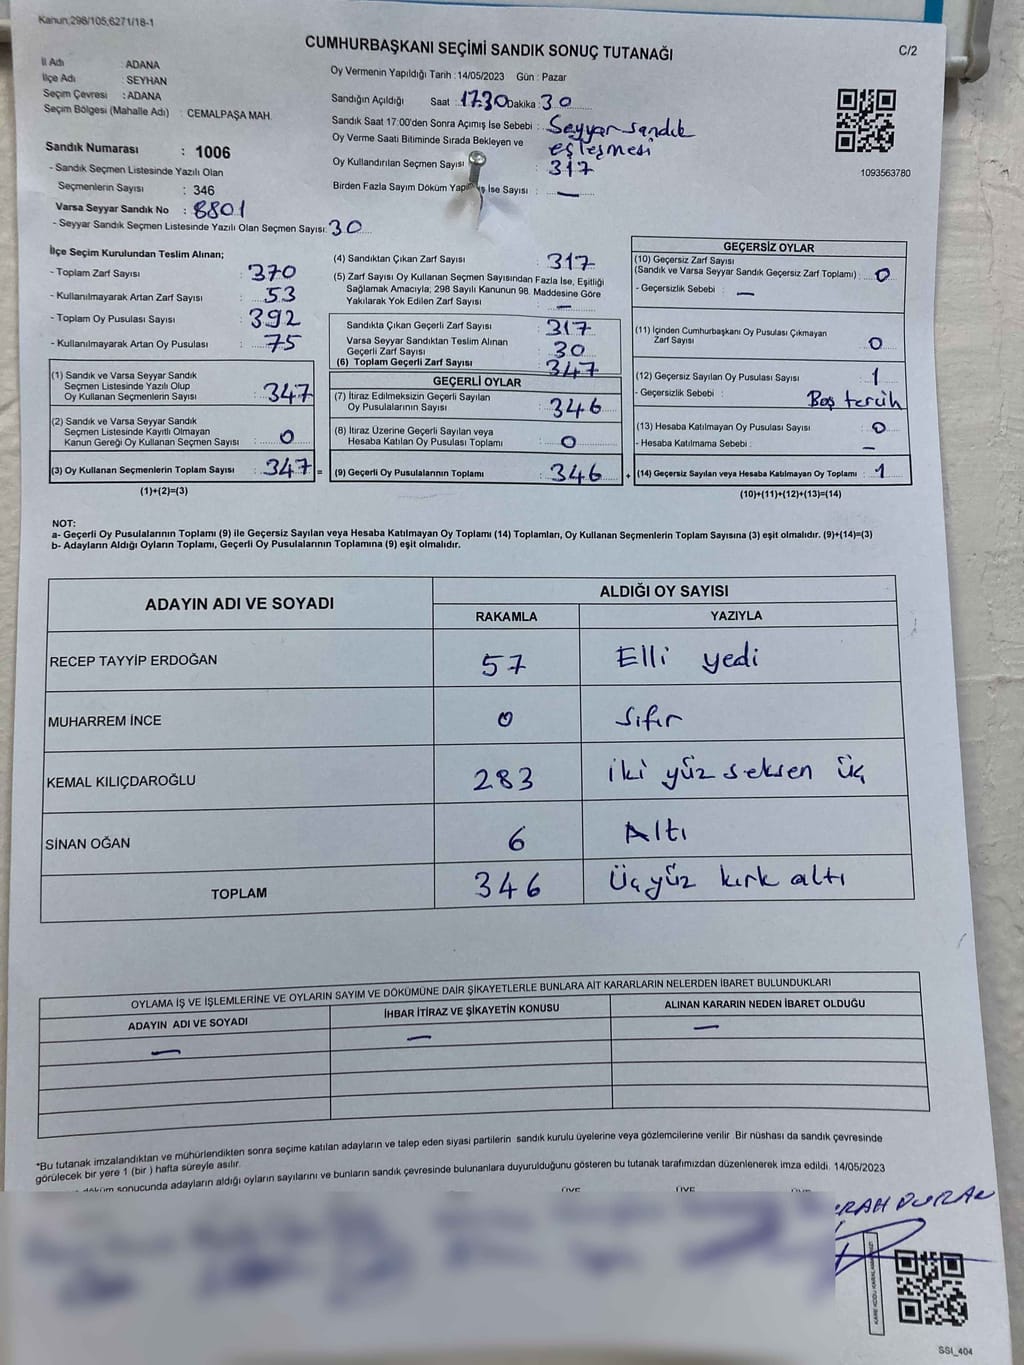 Kanun;298/105,6271/18-1
CUMHURBAŞKANI SEÇİMİ SANDIK SONUÇ TUTANAĞI
C/2
İl Adı : ADANA
İlçe Adı : SEYHAN
Seçim Çevresi : ADANA
Seçim Bölgesi (Mahalle Adı) : CEMALPAŞA MAH.
Sandık Numarası : 1006
- Sandık Seçmen Listesinde Yazılı Olan
Seçmenlerin Sayısı : 346
Varsa Seyyar Sandık No : 8801
- Seyyar Sandık Seçmen Listesinde Yazılı Olan Seçmen Sayısı: 30
Oy Vermenin Yapıldığı Tarih : 14/05/2023 Gün : Pazar
Sandığın Açıldığı Saat : 17.30 Dakika : 30
Sandık Saat 17:00'den Sonra Açımış İse Sebebi : Seyyar sandık
eşleşmesi
Oy Verme Saati Bitiminde Sırada Bekleyen ve
Oy Kullandırılan Seçmen Sayısı : 317
Birden Fazla Sayım Döküm İse Sayısı : —
1093563780
İlçe Seçim Kurulundan Teslim Alınan;
- Toplam Zarf Sayısı : 370
- Kullanılmayarak Artan Zarf Sayısı : 53
- Toplam Oy Pusulası Sayısı : 392
- Kullanılmayarak Artan Oy Pusulası : 75
(1) Sandık ve Varsa Seyyar Sandık
Seçmen Listesinde Yazılı Olup
Oy Kullanan Seçmenlerin Sayısı : 347
(2) Sandık ve Varsa Seyyar Sandık
Seçmen Listesinde Kayıtlı Olmayan
Kanun Gereği Oy Kullanan Seçmen Sayısı : 0
(3) Oy Kullanan Seçmenlerin Toplam Sayısı : 347 =
(1)+(2)=(3)
(4) Sandıktan Çıkan Zarf Sayısı : 317
(5) Zarf Sayısı Oy Kullanan Seçmen Sayısından Fazla İse, Eşitliği
Sağlamak Amacıyla; 298 Sayılı Kanunun 98. Maddesine Göre
Yakılarak Yok Edilen Zarf Sayısı : —
Sandıkta Çıkan Geçerli Zarf Sayısı : 317
Varsa Seyyar Sandıktan Teslim Alınan
Geçerli Zarf Sayısı : 30
(6) Toplam Geçerli Zarf Sayısı : 347
GEÇERLİ OYLAR
(7) İtiraz Edilmeksizin Geçerli Sayılan
Oy Pusulalarının Sayısı : 346
(8) İtiraz Üzerine Geçerli Sayılan veya
Hesaba Katılan Oy Pusulası Toplamı : 0
(9) Geçerli Oy Pusulalarının Toplamı : 346 +
GEÇERSİZ OYLAR
(10) Geçersiz Zarf Sayısı
(Sandık ve Varsa Seyyar Sandık Geçersiz Zarf Toplamı) : 0
- Geçersizlik Sebebi : —
(11) İçinden Cumhurbaşkanı Oy Pusulası Çıkmayan
Zarf Sayısı : 0
(12) Geçersiz Sayılan Oy Pusulası Sayısı : 1
- Geçersizlik Sebebi : Boş tercih
(13) Hesaba Katılmayan Oy Pusulası Sayısı : 0
- Hesaba Katılmama Sebebi : —
(14) Geçersiz Sayılan veya Hesaba Katılmayan Oy Toplamı : 1
(10)+(11)+(12)+(13)=(14)
NOT:
a- Geçerli Oy Pusulalarının Toplamı (9) ile Geçersiz Sayılan veya Hesaba Katılmayan Oy Toplamı (14) Toplamları, Oy Kullanan Seçmenlerin Toplam Sayısına (3) eşit olmalıdır. (9)+(14)=(3)
b- Adayların Aldığı Oyların Toplamı, Geçerli Oy Pusulalarının Toplamına (9) eşit olmalıdır.
ADAYIN ADI VE SOYADI ALDIĞI OY SAYISI
RAKAMLA YAZIYLA
RECEP TAYYİP ERDOĞAN 57 Elli yedi
MUHARREM İNCE 0 Sıfır
KEMAL KILIÇDAROĞLU 283 iki yüz seksen üç
SİNAN OĞAN 6 Altı
TOPLAM 346 Üçyüz kırk altı
OYLAMA İŞ VE İŞLEMLERİNE VE OYLARIN SAYIM VE DÖKÜMÜNE DAİR ŞİKAYETLERLE BUNLARA AİT KARARLARIN NELERDEN İBARET BULUNDUKLARI
ADAYIN ADI VE SOYADI İHBAR İTİRAZ VE ŞİKAYETİN KONUSU ALINAN KARARIN NEDEN İBARET OLDUĞU
— — —
*Bu tutanak imzalandıktan ve mühürlendikten sonra seçime katılan adayların ve talep eden siyasi partilerin sandık kurulu üyelerine veya gözlemcilerine verilir .Bir nüshası da sandık çevresinde
görülecek bir yere 1 (bir ) hafta süreyle asılır.
döküm sonucunda adayların aldığı oyların sayılarını ve bunların sandık çevresinde bulunanlara duyurulduğunu gösteren bu tutanak tarafımızdan düzenlenerek imza edildi. 14/05/2023
ÜYE ÜYE
DURAN
SSI_404